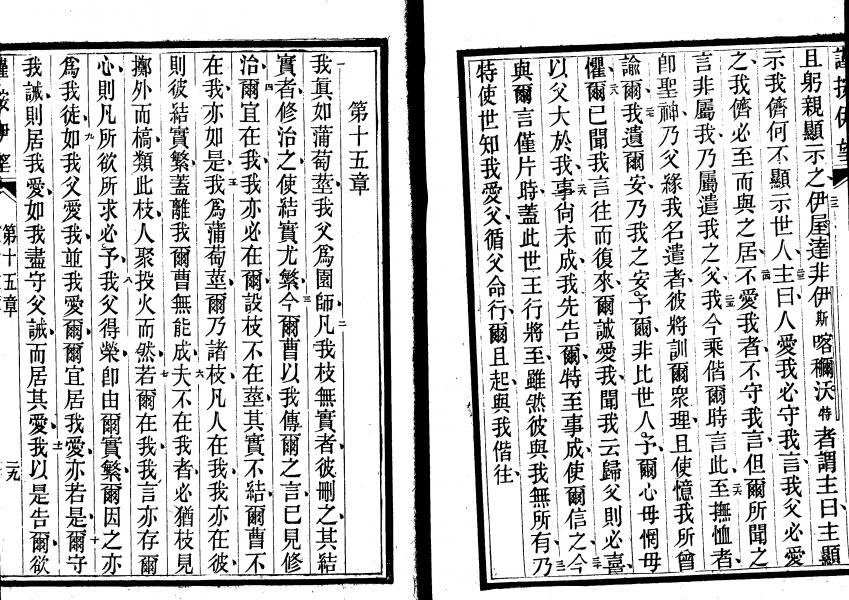 謹按伊望
且躬親顯示之伊屋達非伊斯喀穪沃特者謂主曰主顯
示我儕何不顯示世人主曰人愛我必守我言我父必愛
之我儕必至而與之居不愛我者不守我言但爾所聞之
言非屬我乃屬遣我之父我今乘偕爾時言此至撫恤者
卽聖神乃父緣我名遣者彼將訓爾衆理且使憶我所曾
諭爾我遺爾安乃我之安予爾非比世人予爾心毋惘毋
懼爾已聞我言往而復來爾誠愛我聞我云歸父則必喜
以父大於我事尙未成我先告爾特至事成使爾信之今
與爾言僅片時蓋此世王行將至雖然彼與我無所有乃
特使世知我愛父循父命行爾且起與我偕往
第十五章
我眞如蒲萄莖我父爲園師凡我枝無實者彼刪之其結
實者修治之使結實尤繁今爾曹以我傳爾之言已見修
治爾宜在我我亦必在爾設枝不在莖其實不結爾曹不
在我亦如是我爲蒲萄莖爾乃諸枝凡人在我我亦在彼
則彼結實繁蓋離我爾曹無能成夫不在我者必猶枝見
擲外而槁類此枝人聚投火而然若爾在我我言亦存爾
心則凡所欲所求必予我父得榮卽由爾實繁爾因之亦
爲我徒如我父愛我並我愛爾爾宜居我愛亦若是爾守
我誡則居我愛如我盡守父誡而居其愛我以是告爾欲
謹按伊望
第十五章
二九